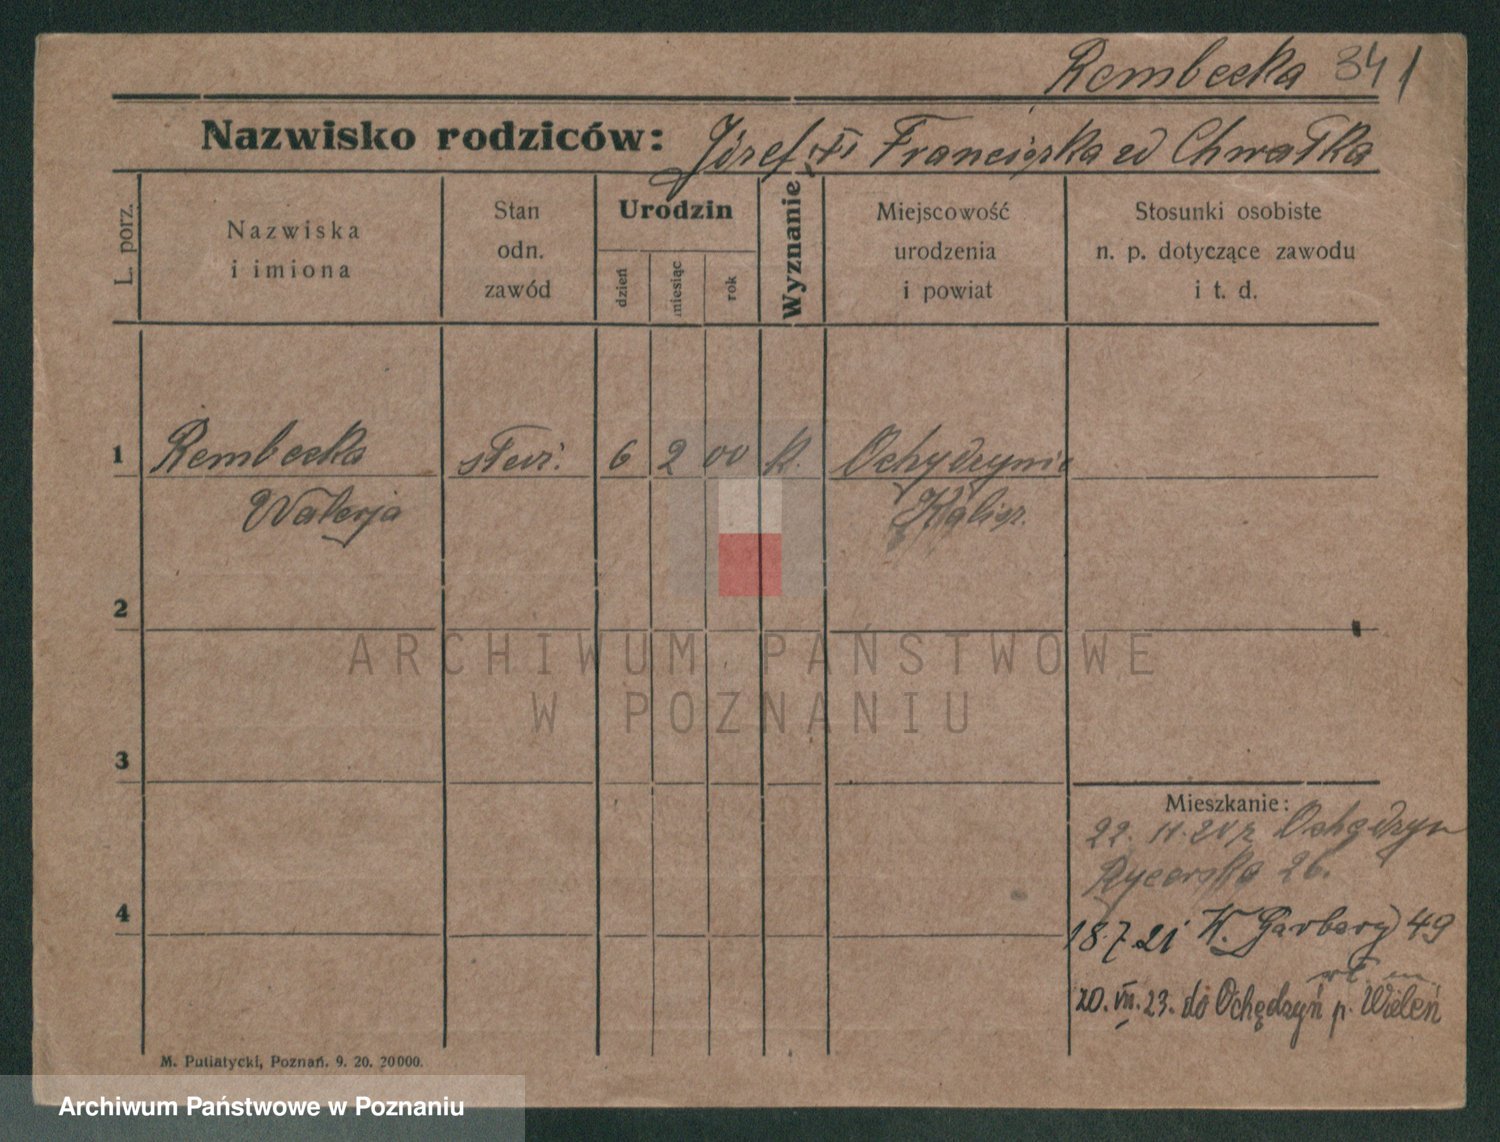 Rembecka 34 1
Nazwisko rodziców: Józef i Franciszka zd Chwałka
L. porz.
Nazwiska
i imiona
Stan
odn.
zawód
Urodzin
dzień
miesiąc
rok
Wyznanie
Miejscowość
urodzenia
i powiat
Stosunki osobiste
n. p. dotyczące zawodu
i t. d.
1 Rembecka służ. 6 2 00 k. Ochydzynie
Walerja
2
ARCHIWUM PAŃSTWOWE
W POZNANIU
3
Mieszkanie:
22. 11. 20 z Ochędzyn
Rycerska 26.
4
18.7.21 W. Garbary 49
20. VII. 23. do Ochędzyń p. Wieleń
M. Putiatycki, Poznań. 9. 20. 20000.
Archiwum Państwowe w Poznaniu